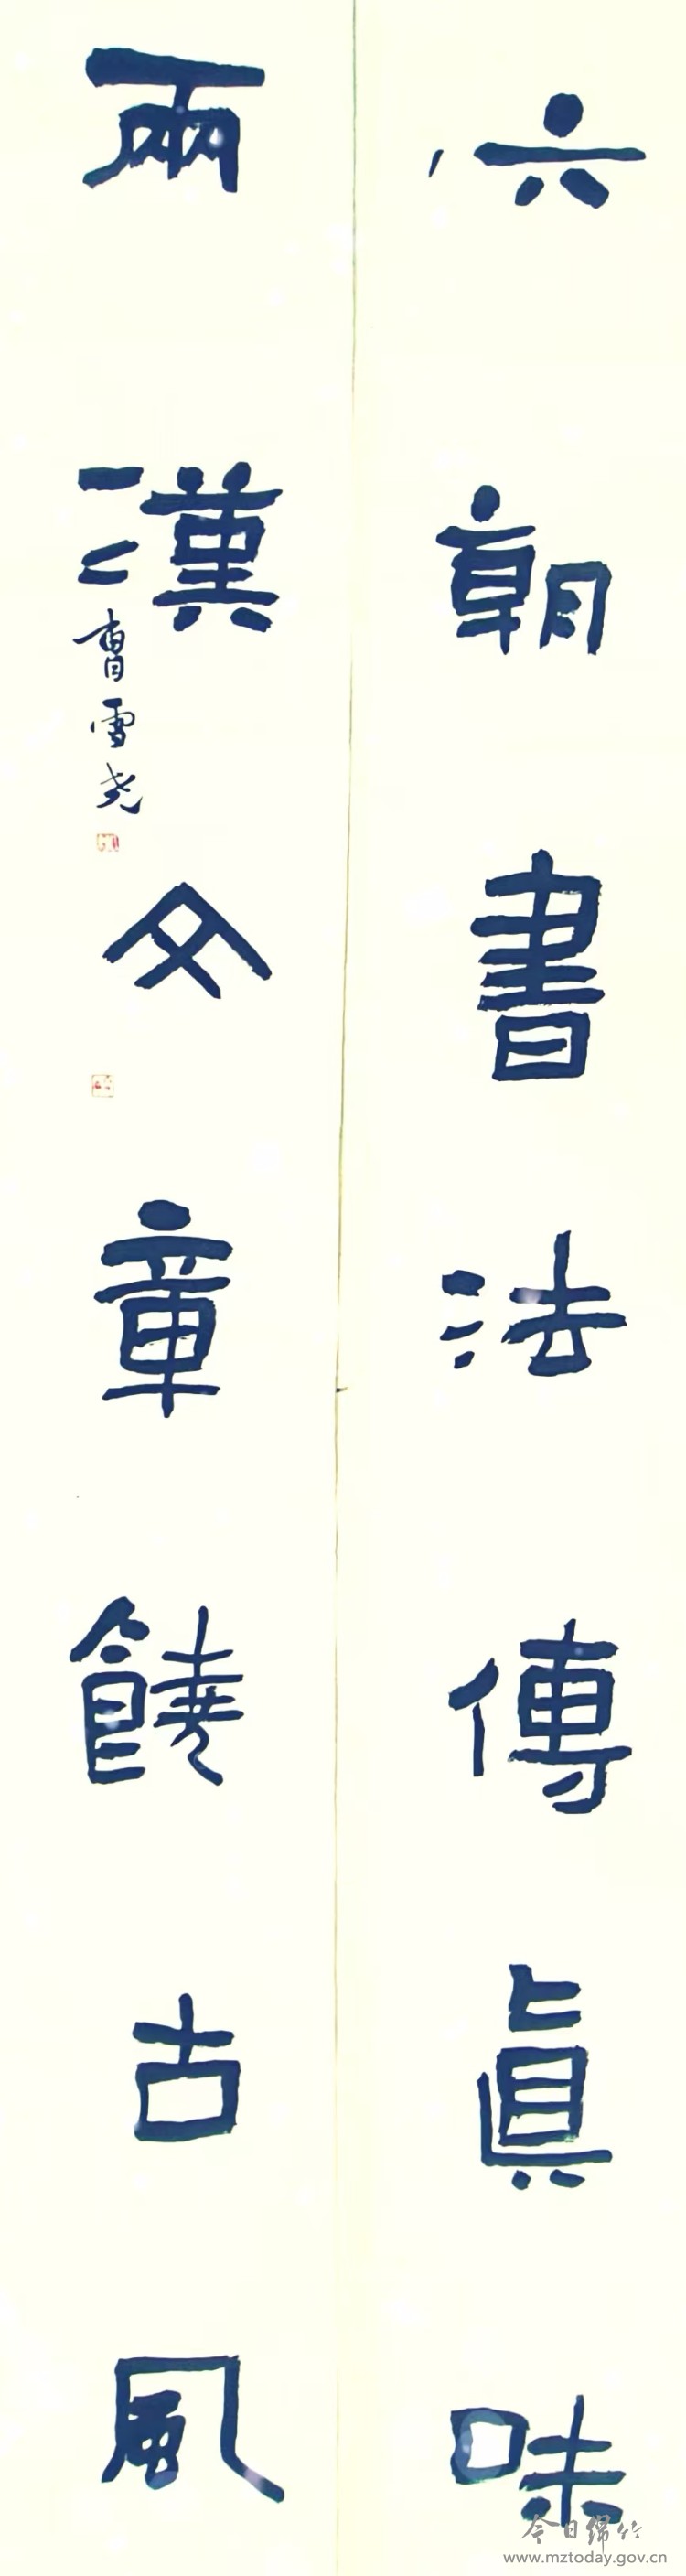 六朝書法傳真味
兩漢文章饒古風
曹雪尧
今日绵竹
www.mztoday.gov.cn